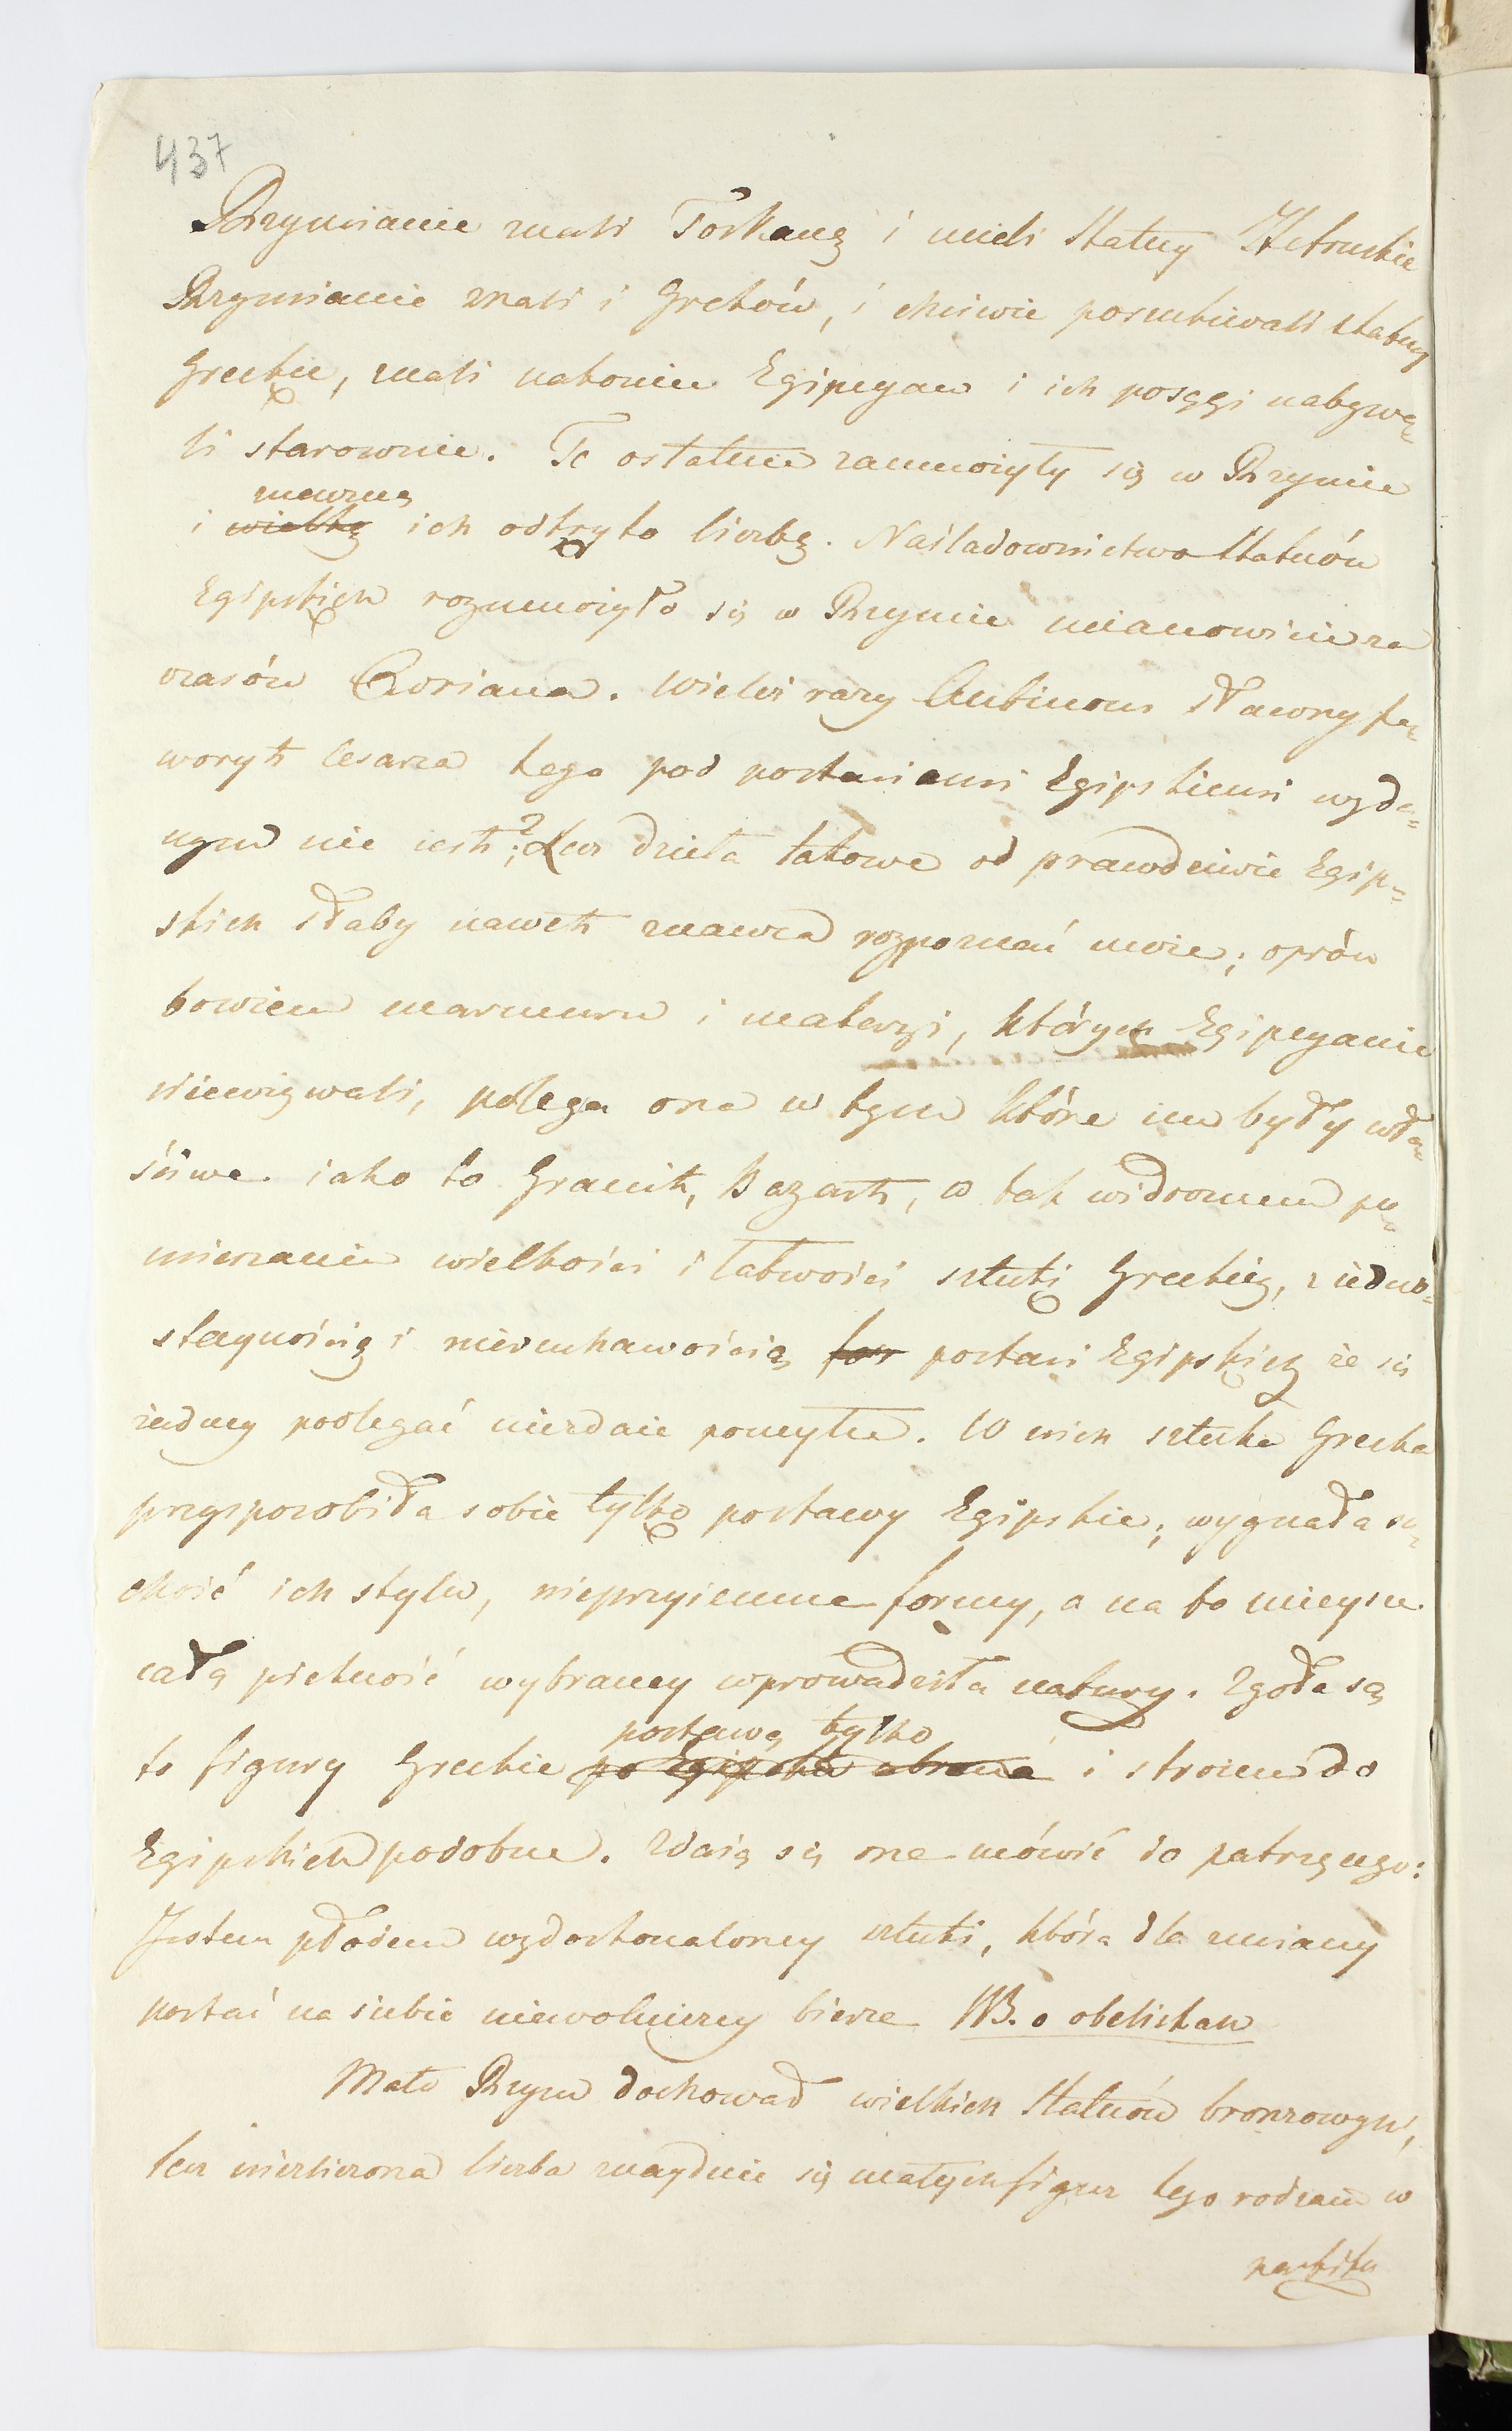 437
Rzymianie znali Toskanę i mieli Statuy Hetruskie
Rzymianie znali i Greków, i chciwie poszukiwali statuy
Greckie, znali nakoniec Egipcyan i ich posągi nabywa=
li starownie. Te ostatnie zamnożyły się w Rzymie
znaczną
i wielką ich odkryto liczbę. Naśladownictwo Statuów
Egipskich rozmnożyło się w Rzymie mianowicie za
czasów Adriana. Wieleż razy Antinous sławny fa=
woryt Cesarza tego pod postaciami Egipskiemi wyda=
nym nie iest?; Lecz dzieła takowe od prawdziwie Egip=
skich słaby nawet znawca rozpoznać może; oprócz
bowiem marmuru i materyi, których Egipcyanie
nieużywali, polega ona w tym które im były wła=
ściwe. iako to Granit, Bazart, a tak widocznem po=
mieszaniu wielkości i łatwości sztuki Greckiey, z iedno=
staynością i nieruchawością for postaci Egipskich że się
żadney podlegać niezdaie pomyłce. W nich sztuka Grecka
przysposobiła sobie tylko postawy Egipskie; wygnała su=
chość ich stylu, nieprzyiemne formy, a na to mieysce
całą piękność wybraney wprowadziła natury. Zgoła są
postawą tylko
to figury Greckie po Egipsku ubrane i stroiem do
Egipskich podobne. Zdaią się one mówić do patrzącego:
Jestem płodem wydoskonaloney sztuki, która dla zmiany
postać na siebie niewolniczey bierze NB. o obeliskach
Mało Rzym dochował wielkich Statuów bronzowych,
lecz niezliczona liczba znayduie się małych figur tego rodzaiu w